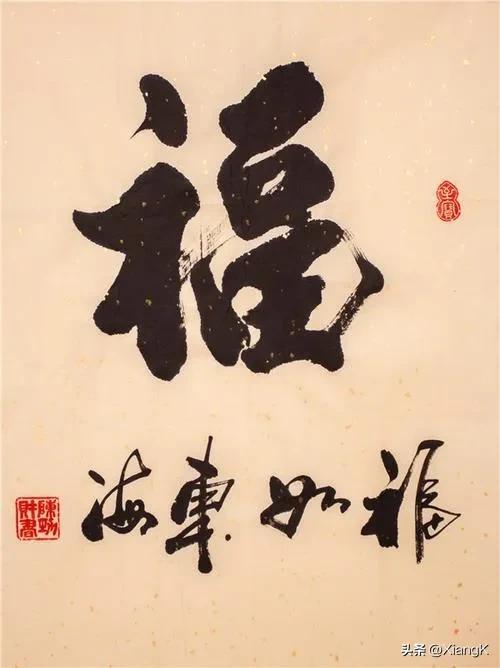 福
福如東海
头条 @XiangK